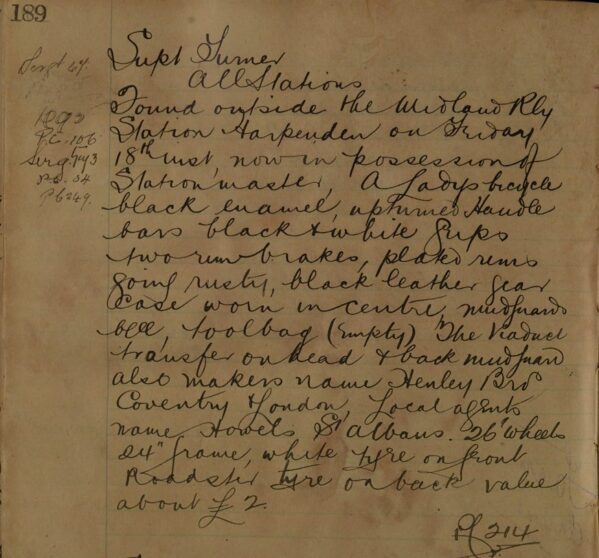 189
Sergt 64.
1093
P.C. 106
Sergt 43
P.C. 34
P.C 249.
Supt Turner
All Stations
Found outside the Midland Rly
Station Harpenden on Friday
18th inst, now in possession of
Station master, A Ladys bicycle
black enamel, upturned Handle
bars black & white Grips
two rim brakes, plated rims
going rusty, black leather gear
Case worn in centre, mudguards
bell, toolbag (Empty) The Viaduct
transfer on head & back mudguard
also makers name Henley Bros
Coventry & London, Local agents
name Howels St Albans. 26" wheels
24" frame, white tyre on front
Roadster tyre on back value
about £2.
214